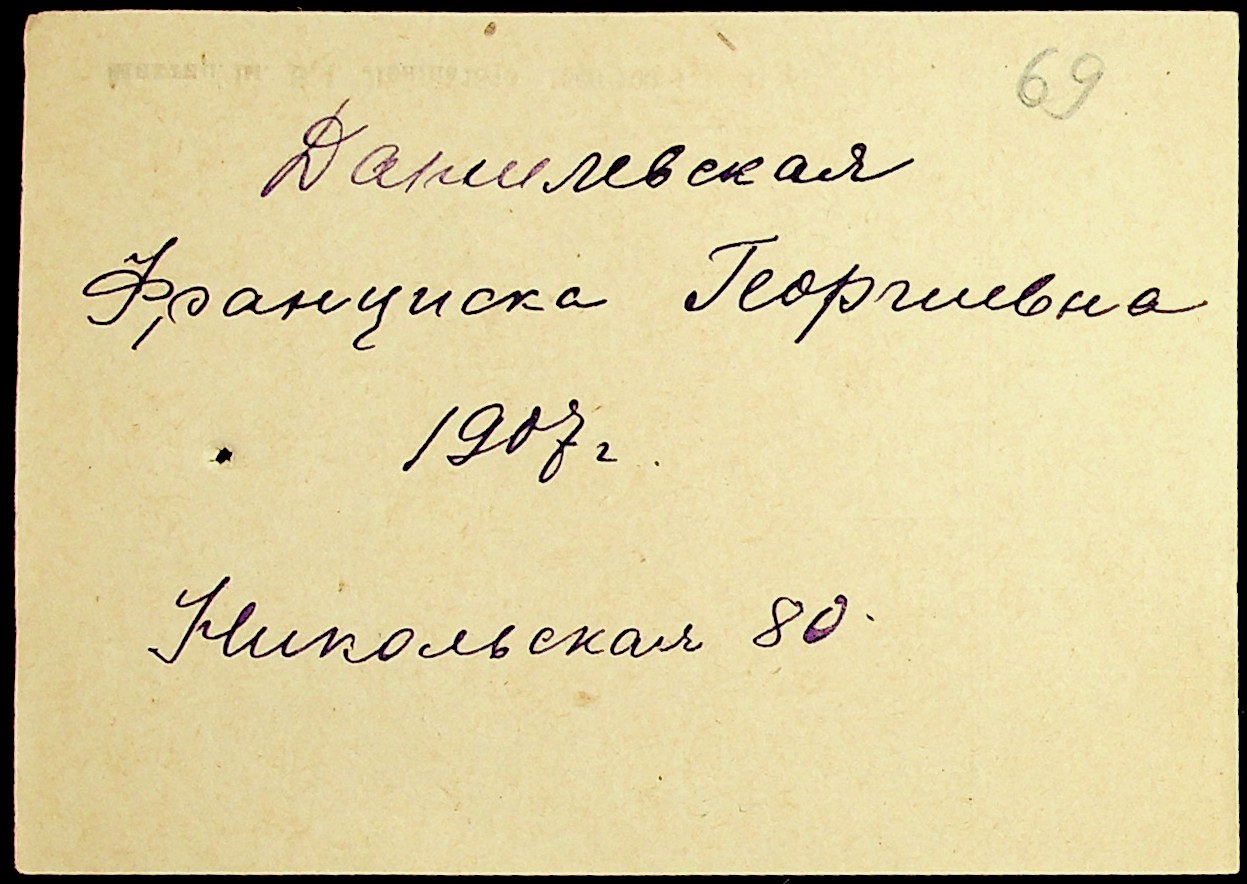 69
Данилевская
Франциска Георгиевна
1907 г.
Никольская 80.